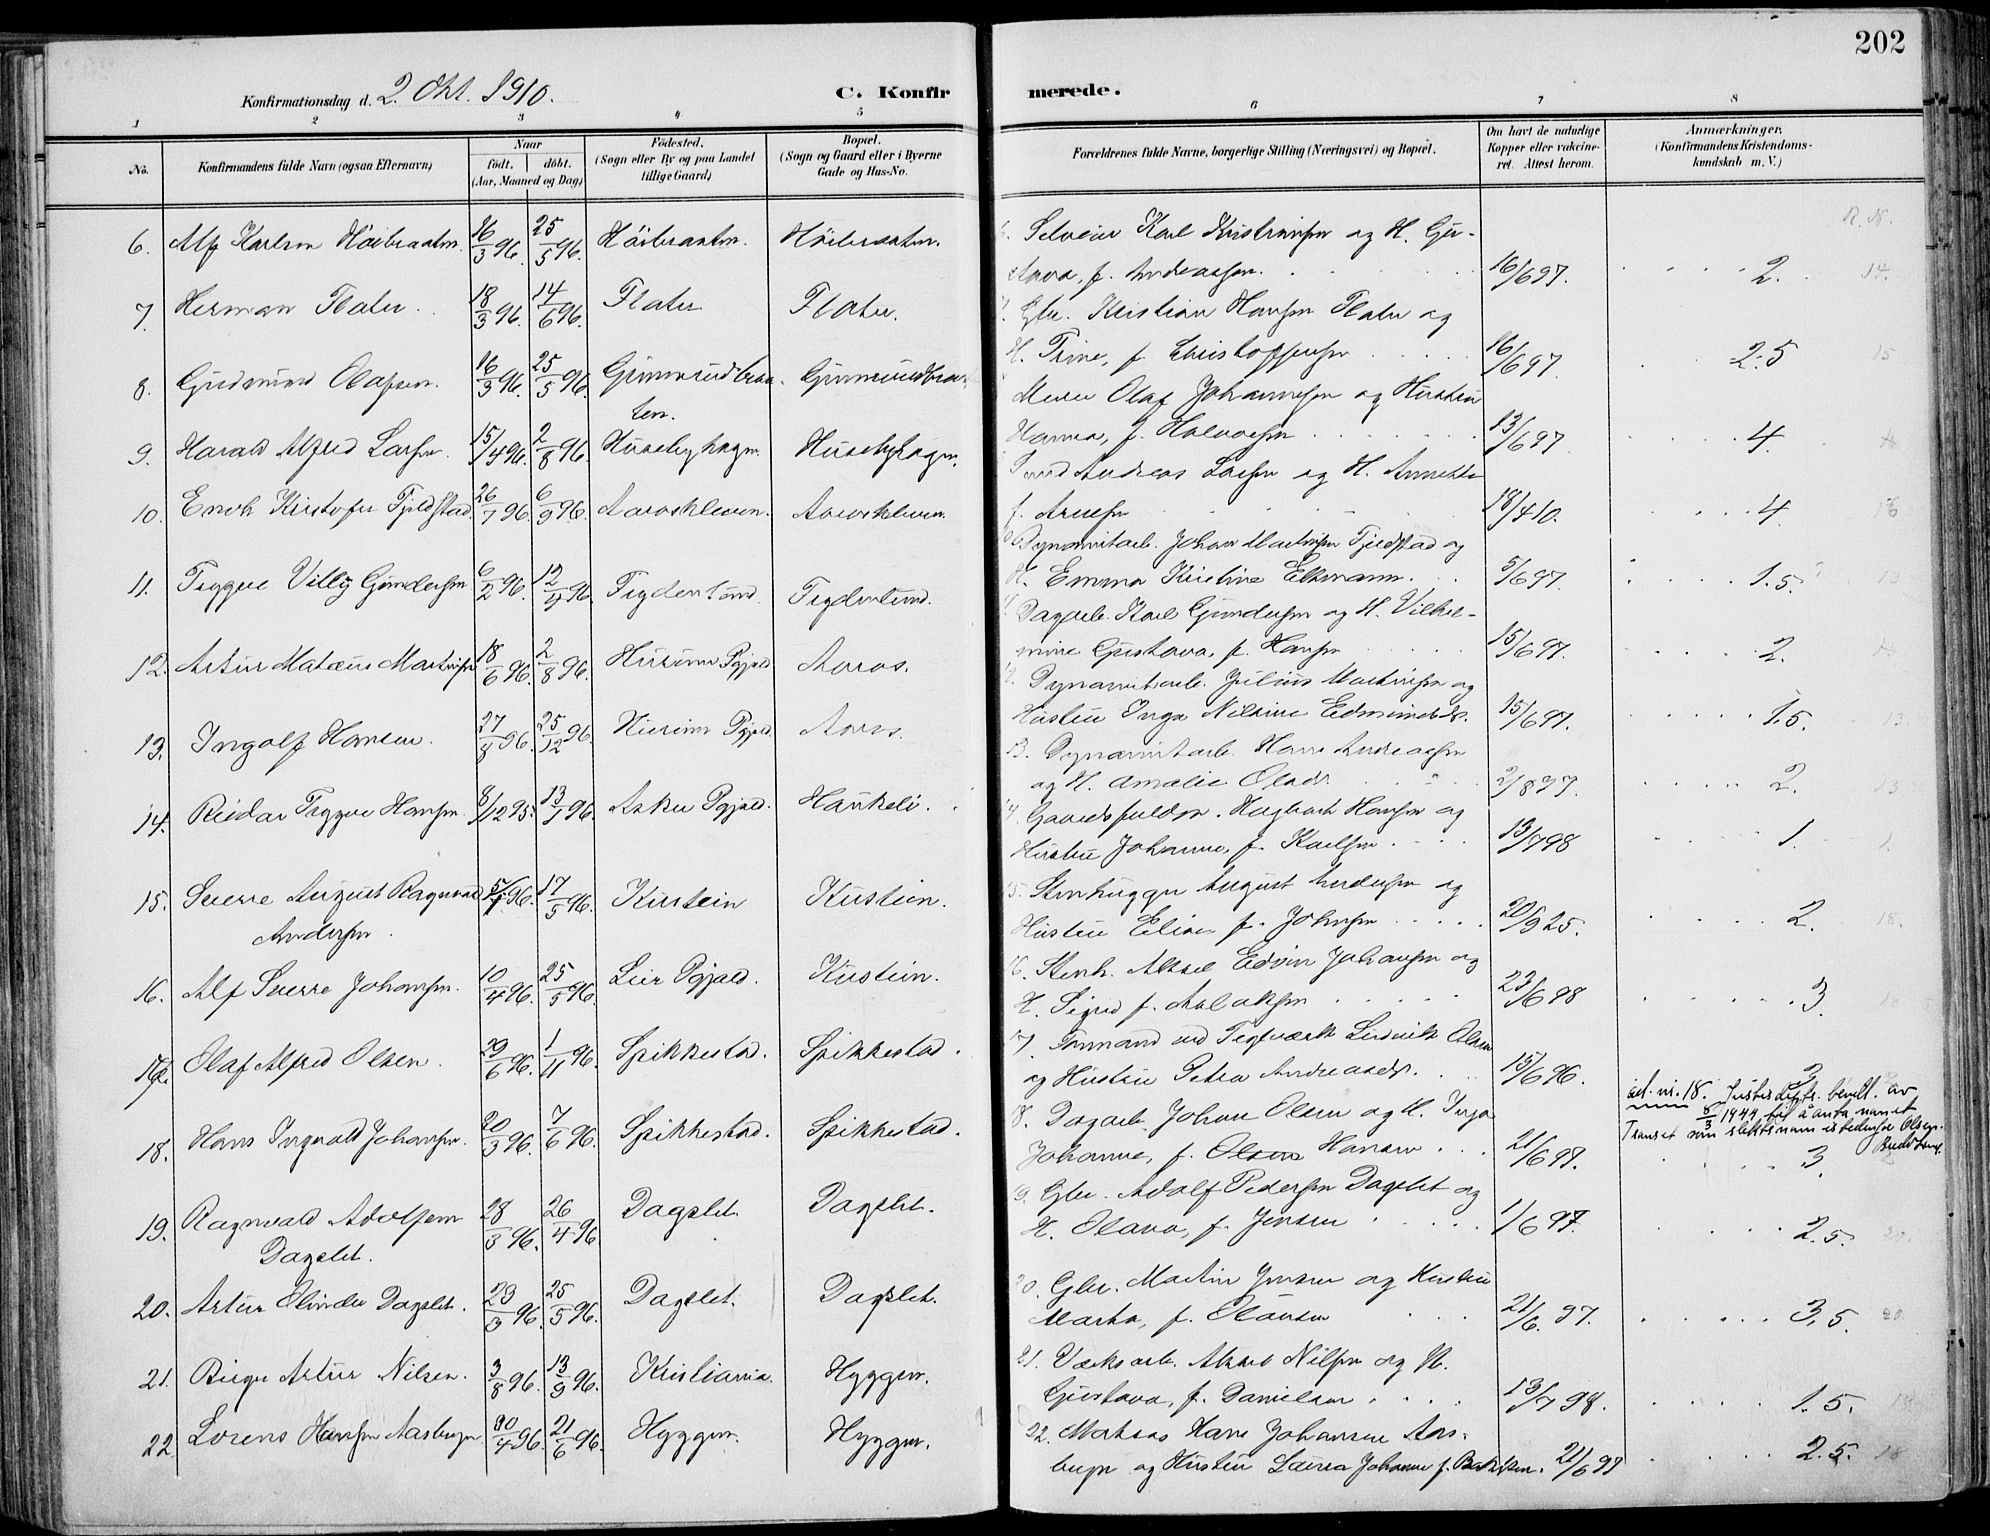 202
Konfirmationsdag d. 2. Okt. 1910.
C. Konfirmerede.
1 2 3 4 5 6 7 8
No.
Konfirmandens fulde Navn (ogsaa Efternavn)
Naar
født. døbt.
(Aar, Maaned og Dag)
Fødested.
(Sogn eller By og paa Landet
tillige Gaard)
Bopæl.
(Sogn og Gaard eller i Byerne
Gade og Hus-No.
Forældrenes fulde Navne, borgerlige Stilling (Næringsvei) og Bopæl.
Om havt de naturlige
Kopper eller vakcine-
ret. Attest herom.
Anmærkninger.
(Konfirmandens Kristendoms-
kundskab m. V.)
R. N.
6. Alf Karlsen Høibraaten. 16/3 96. 25/5 96. Høibraaten. Høibraaten.
Karl Kristiansen og H. Gu-
f. Andreassen. 16/6 97. 2. 14.
7. Herman Flater. 18/3 96. 14/6 96. Flater Flater.
Gbr. Kristian Hansen Flater og
H. Trine, f. Christoffersen 16/6 97. 2.5 15
8. Gudmund Olafsen. 16/3 96. 25/5 96. Gunnerudbraa-
ten.
Murer Olaf Johannessen og Hustru
Hanna, f. Halvorsen 13/6 97 4.
9. Harald Alfred Larsen. 15/4 96. 2/8 96. Husebyhagen. Husebyhagen.
Andreas Larsen og H. Annette
f. Arnesen 18/4 10. 4. 16
10. Enok Kristofer Fjeldstad 26/7 96. 6/9 96. Aaroskleven. Aaroskleven.
Dynamitarb. Johan Martinsen Fjeldstad og
H. Emma Kristine Ekmann. 5/6 97. 1.5. 13
11. Trygve Villy Gundersen 6/2 96. 12/4 96. Frydenlund. Frydenlund.
Dagarb. Karl Gundersen og H. Vilhel-
mine Gustava, f. Hansen 15/6 97. 2.
12. Artur Matæus Martinsen 18/6 96. 2/8 96. Hurum Pgjæld Aaros.
12. Dynamitarb. Julius Martinsen og
Hustru Inga Nilsine Edmundsdr. 15/6 97. 1.5. 13
13. Ingolf Hansen. 27/8 96. 25/12 96. Hurum Pgjæld. Aaros.
13. Dynamitarb. Hans Andreassen
og H. Amalie Olsdr. 2/8 97. 2. 13
14. Reidar Trygve Hansen. 8/12 95. 13/1 96. Asker Pgjæld. Haukeli.
Gaardsfuldm. Hagbart Hansen og
Hustru Johanne, f. Karlsen. 13/7 98 1.
15. Sverre August Ragnvald 5/1 96. 17/5 96. Kirstein Kirstein.
Andersen.
15. Stenhugger August Andersen og
Hustru Elise f. Johnsen 20/9 25. 2. 18.
16. Alf Sverre Johansen. 10/4 96. 25/5 96. Lier Pgjæld. Kirstein.
16. Stenh. Aksel Edvin Johansen og
H. Sigrid f. Aslaksen 23/6 98 3.
Olaf Alfred Olsen. 29/6 96. 1/11 96. Spikkestad. Spikkestad.
17. Formand ved Teglværk Ludvik Olsen
og Hustru Petra Andreasdr. 15/6 96. 3.
18. Hans Ingvald Johansen. 20/3 96. 7/6 96. Spikkestad. Spikkestad.
18. Dagarb. Johan Olsen og H. Inga
Johanne, f. Olsen Hansen 21/6 97. 3.
ad. nr. 18. Justisdptr. bevilt. av
8/3 1944 til å anta navnet
Transet som slektsnavn istedenfor Olsen.
19. Ragnvald Adolfsen 28/3 96. 26/4 96. Dagslet. Dagslet.
Dagslet.
19. Gbr. Adolf Pedersen Dagslet og
H. Olava, f. Jensen 1/6 97. 2.5. 20.
20. Artur Elinder Dagslet. 23/3 96. 25/5 96. Dagslet. Dagslet.
20. Gbr. Martin Jensen og Hustru
Marta, f. Olausen 21/6 97. 3,5. 20
21. Birger Artur Nilsen. 3/8 96. 13/9 96. Kristiania. Hyggen.
21. Værksarb. Aksel Nilsen og H.
Gustava, f. Danielsen 13/7 98. 1.5.
22 Lorens Hansen Aasbergen 30/4 96. 21/6 96. Hyggen. Hyggen.
22. Matros Hans Johansen Aas-
bergen og Hustru Laura Johanne f. 21/6 97 2.5. 18